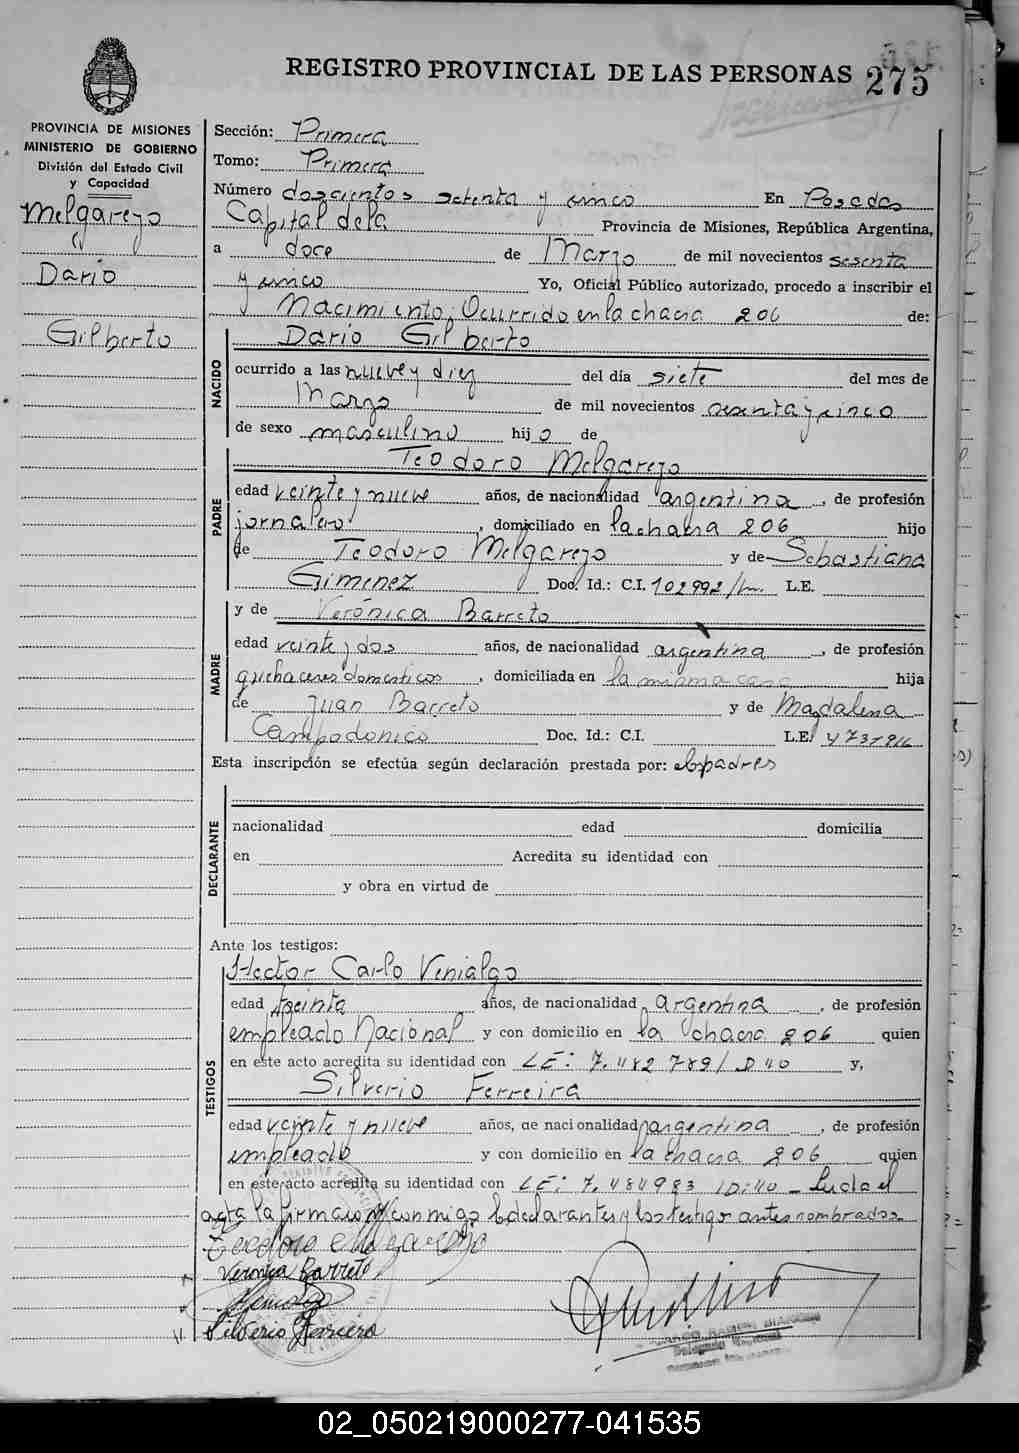 REGISTRO PROVINCIAL DE LAS PERSONAS 275
PROVINCIA DE MISIONES
MINISTERIO DE GOBIERNO
División del Estado Civil
y Capacidad
Melgarejo
Dario
Gilberto
Sección: Primera
Tomo: Primera
Número doscientos setenta y cinco En Posadas
Capital dela Provincia de Misiones, República Argentina,
a doce de Marzo de mil novecientos sesenta
y cinco Yo, Oficial Público autorizado, procedo a inscribir el
Nacimiento; Ocurrido en la chacra 206 de:
NACIDO
Dario Gilberto
ocurrido a las nueve y diez del día siete del mes de
Marzo de mil novecientos sesenta y cinco
de sexo masculino hijo de
PADRE
Teodoro Melgarejo
edad veinte y nueve años, de nacionalidad argentina, de profesión
jornalero, domiciliado en la chacra 206 hijo
de Teodoro Melgarejo y de Sebastiana
Gimenez Doc. Id.: C.I. 102992/ L.E.
MADRE
y de Verónica Barreto
edad veinte y dos años, de nacionalidad argentina, de profesión
quehaceres domesticos, domiciliada en la misma casa hija
de Juan Barreto y de Magdalena
Campodonico Doc. Id.: C.I. L.E.
Esta inscripción se efectúa según declaración prestada por: padres
DECLARANTE
nacionalidad edad domicilia
en Acredita su identidad con
y obra en virtud de
Ante los testigos:
TESTIGOS
Hector Carlo Venialgo
edad treinta años, de nacionalidad argentina, de profesión
empleado Nacional y con domicilio en la chacra 206 quien
en este acto acredita su identidad con LE: 7.482 789/ D 40 y,
Silverio Ferreira
edad veinte y nueve años, de nacionalidad argentina, de profesión
empleado y con domicilio en la chacra 206 quien
en este acto acredita su identidad con LE: 7.484983 D:40 - Leida el
acta la firman conmigo declarantes y los testigo antes nombrados
Teodoro Melgarejo
Veronica Barreto
Silverio Ferreira
02_050219000277-041535